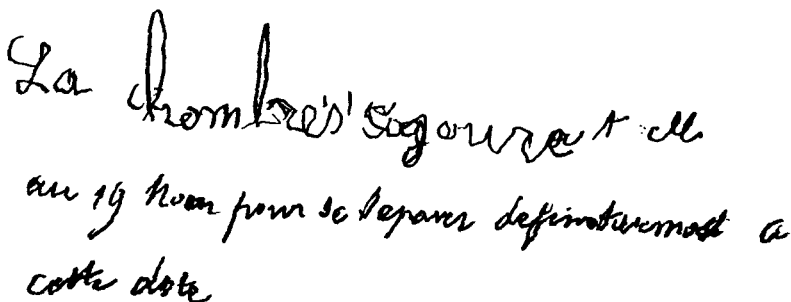 La chambre s'ajournera t elle
au 19 Mars pour se separer definitivement a
cette date